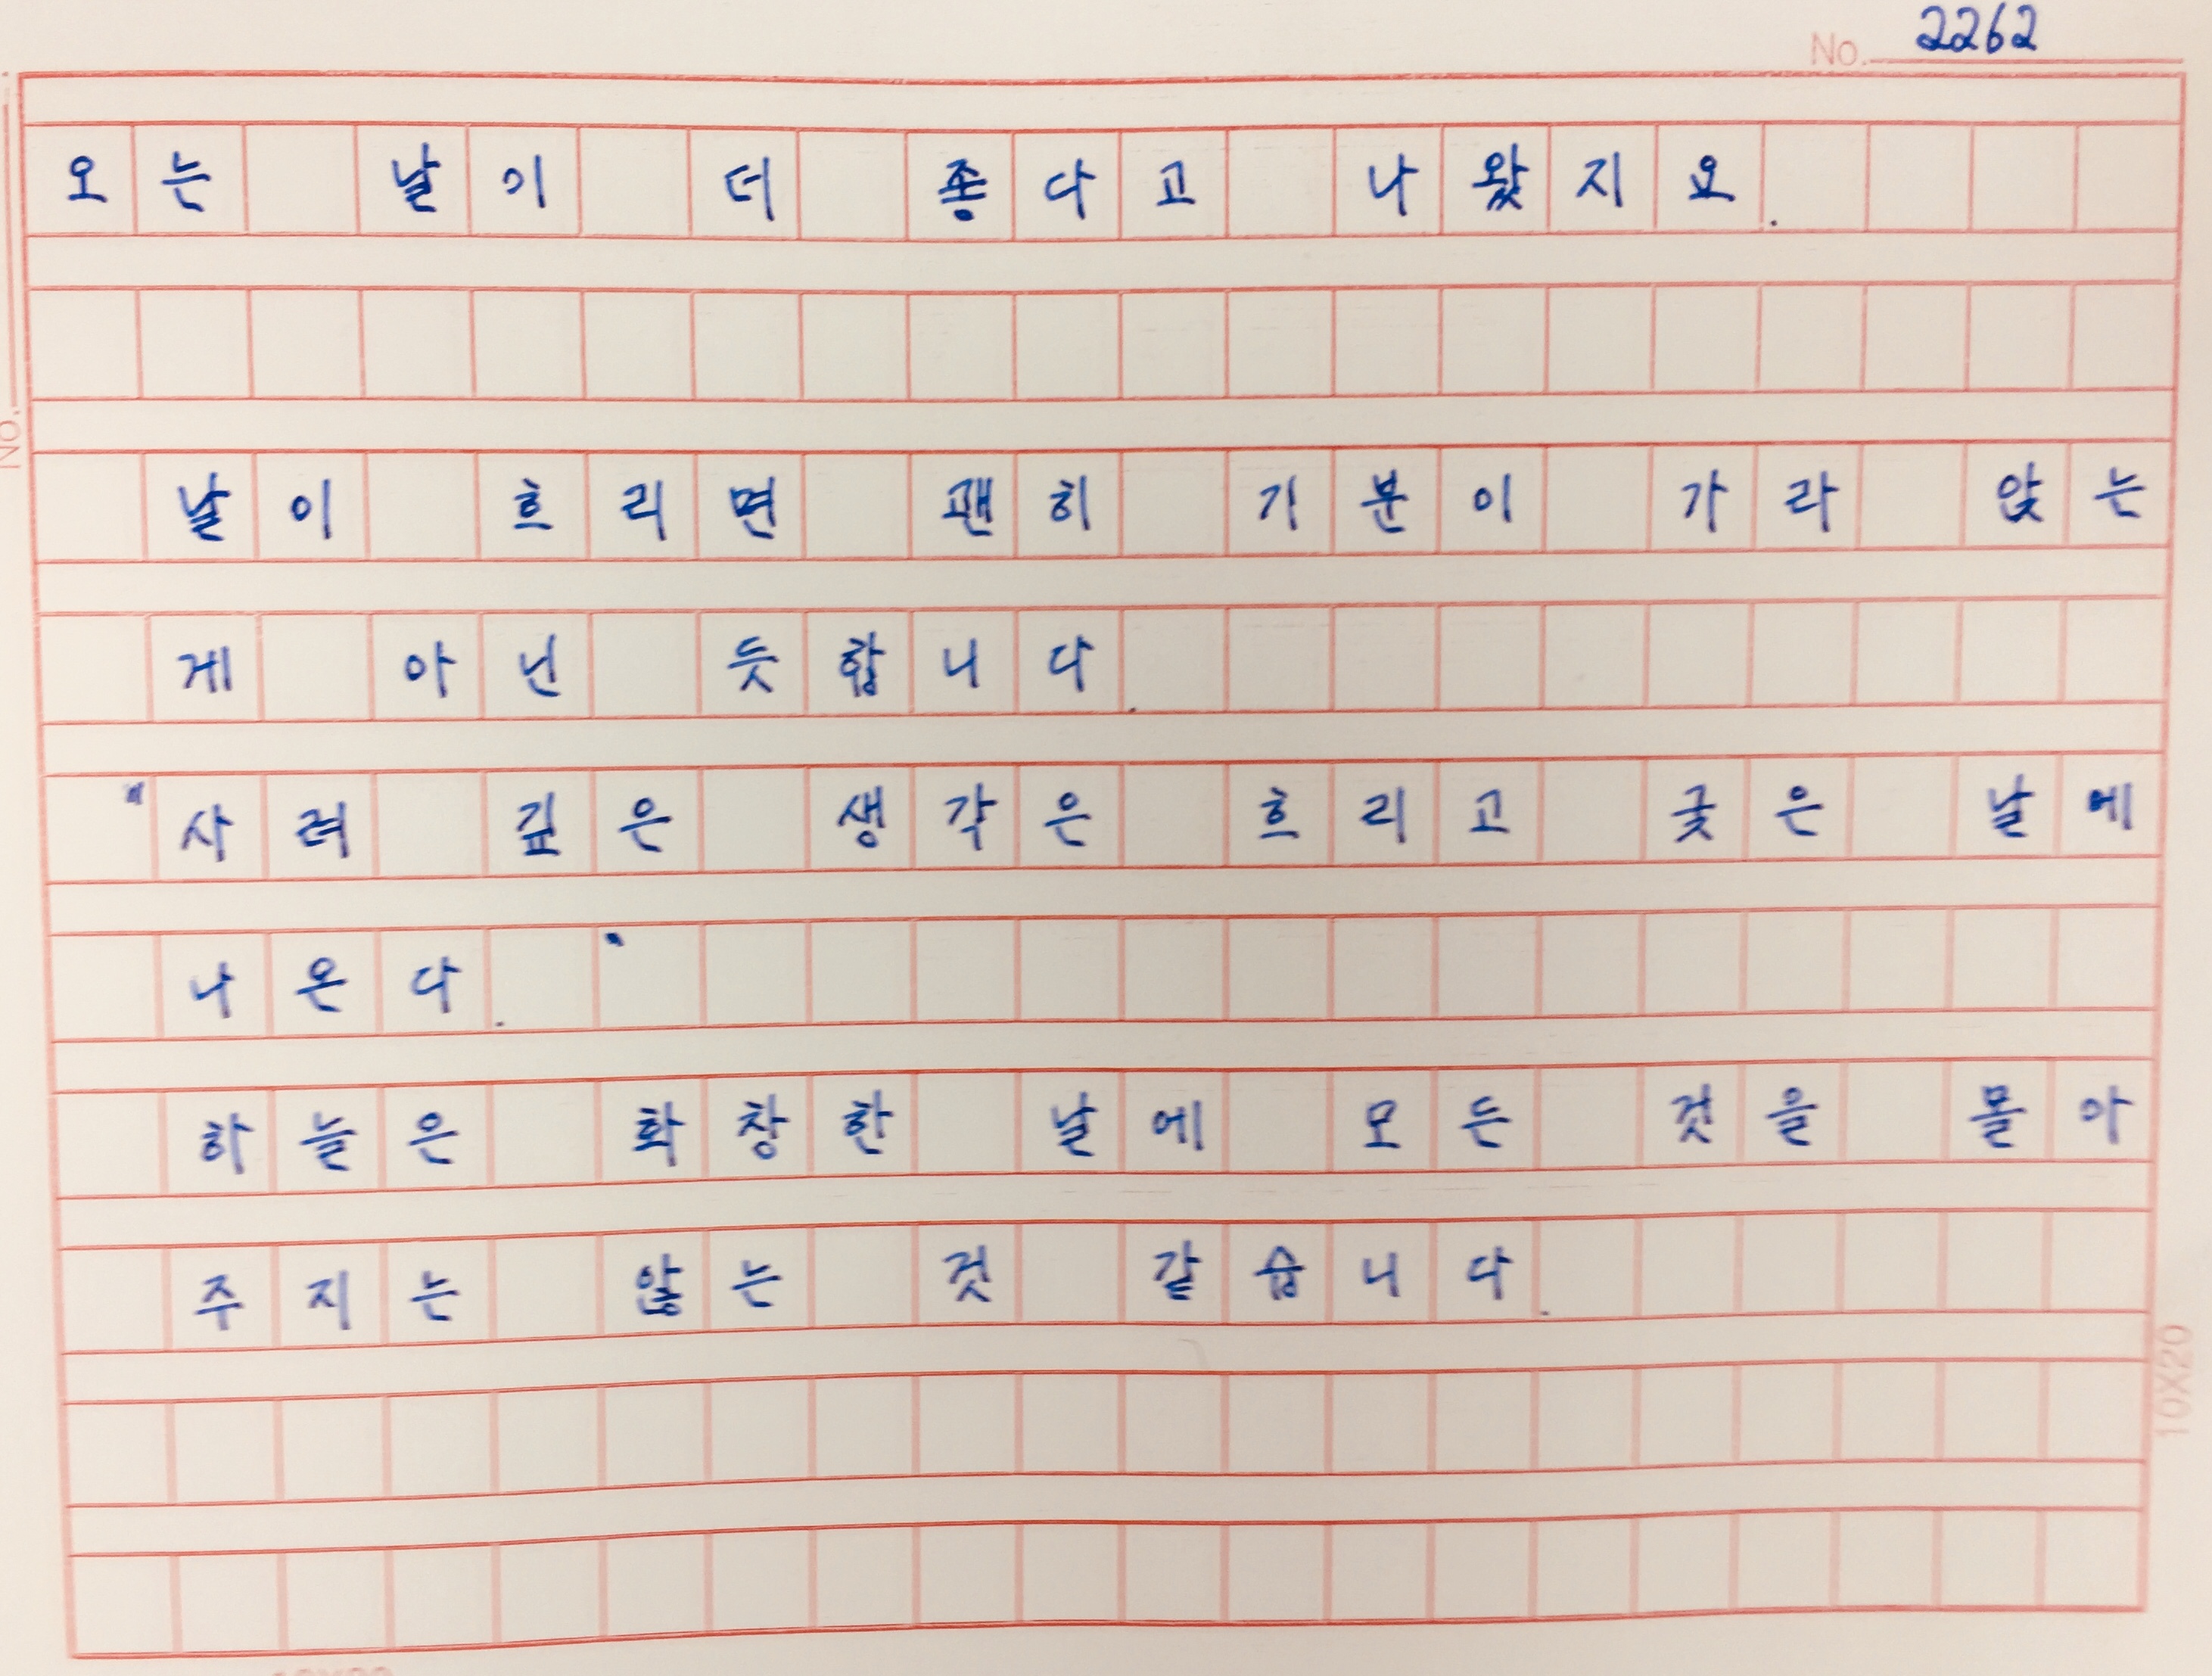 No. 2262
오는 날이 더 좋다고 나왔지요.
날이 흐리면 괜히 기분이 가라 앉는
게 아닌 듯합니다.
"사려 깊은 생각은 흐리고 궂은 날에
나온다."
하늘은 화창한 날에 모든 것을 몰아
주지는 않는 것 같습니다.
No.
10X20